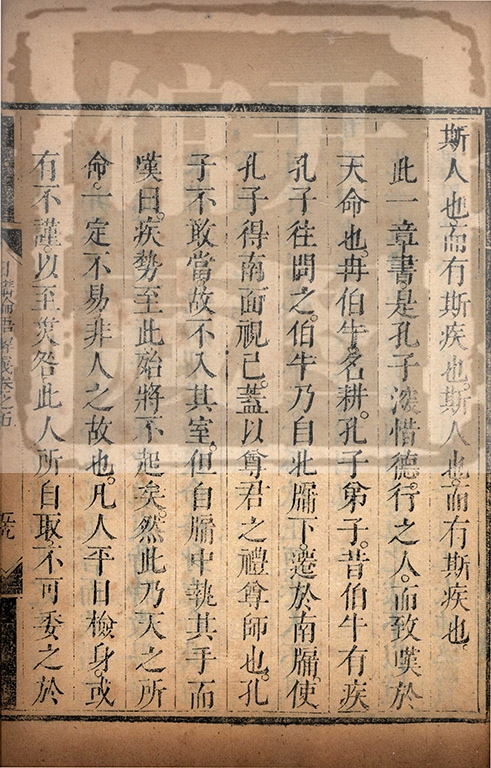 斯人也而有斯疾也。斯人也。而有斯疾也。
此一章書是孔子深惜德行之人。而致嘆於
天命也。冉伯牛名耕。孔子弟子。昔伯牛有疾
孔子往問之。伯牛乃自北牖下。遷於南牖。使
孔子得南面視己。蓋以尊君之禮尊師也。孔
子不敢當。故不入其室。但自牖中執其手而
嘆曰。疾勢至此。殆將不起矣。然此乃天之所
命。一定不易。非人之故也。凡人平日檢身。或
有不謹。以至災咎。此人所自取。不可委之於
日講論語解義卷之五